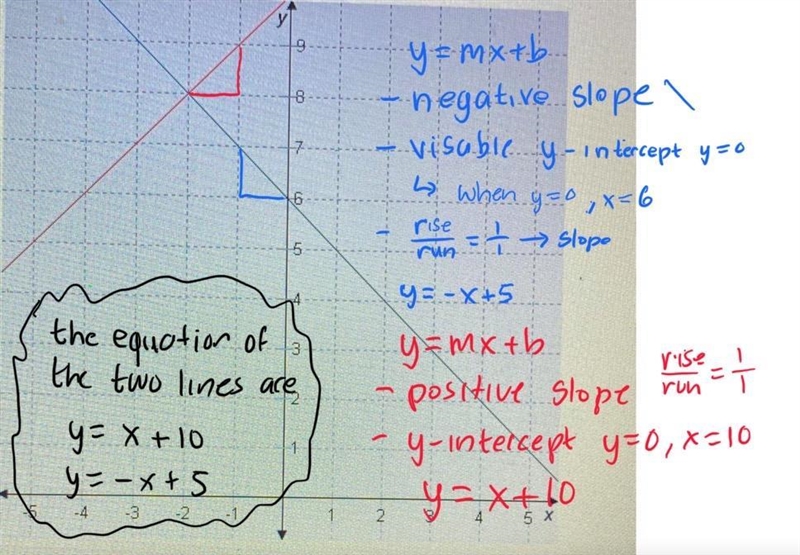 y
9
8
7
6
5
4
3
2
1
-5 -4 -3 -2 -1 1 2 3 4 5 x
y=mx+b
- negative slope \
- visable y-intercept y=0
↳ when y=0, x=6
- rise/run = 1/1 → slope
y=-x+5
y=mx+b
- positive slope rise/run = 1/1
- y-intercept y=0, x=10
y=x+10
the equation of
the two lines are
y= x+10
y= -x+5